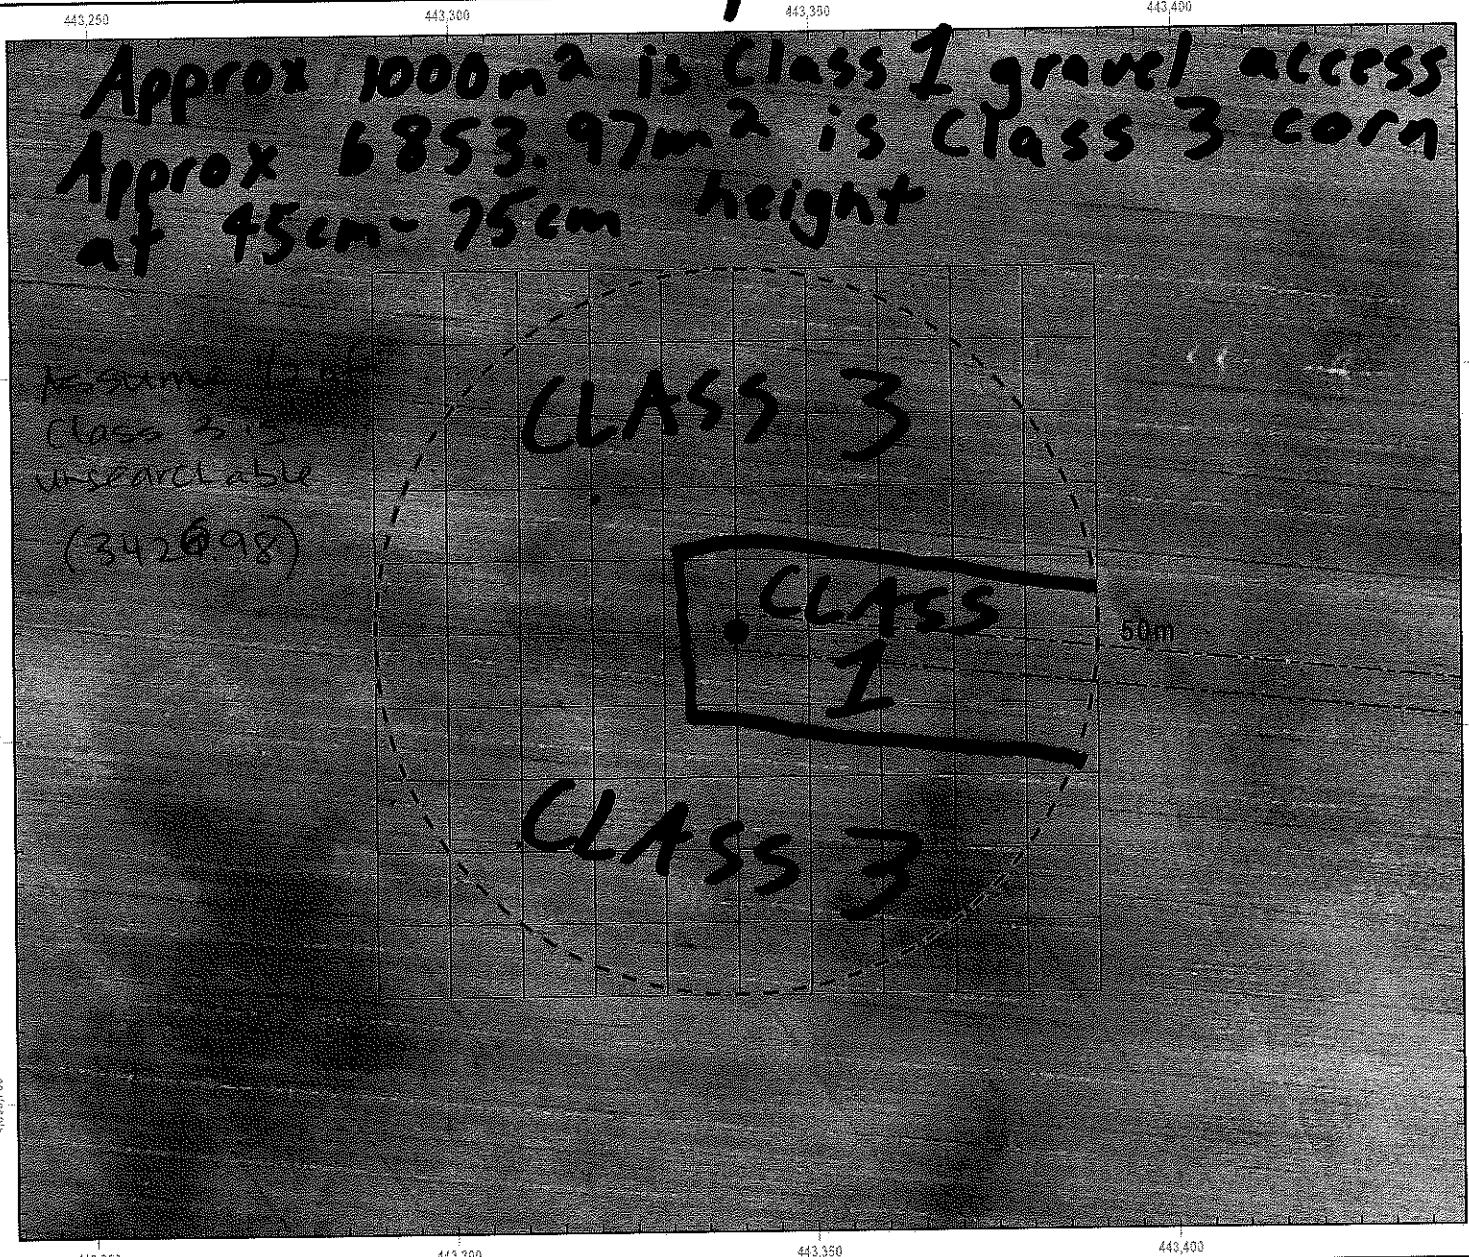 443,250 443,300 443,350 443,400
Approx 1000m² is Class 1 gravel access
Approx 6853.97m² is Class 3 corn
at 45cm-75cm height
Assume
class 3 is
unsearchable
CLASS 3
CLASS
1
50m
CLASS 3
443,300 443,350 443,400